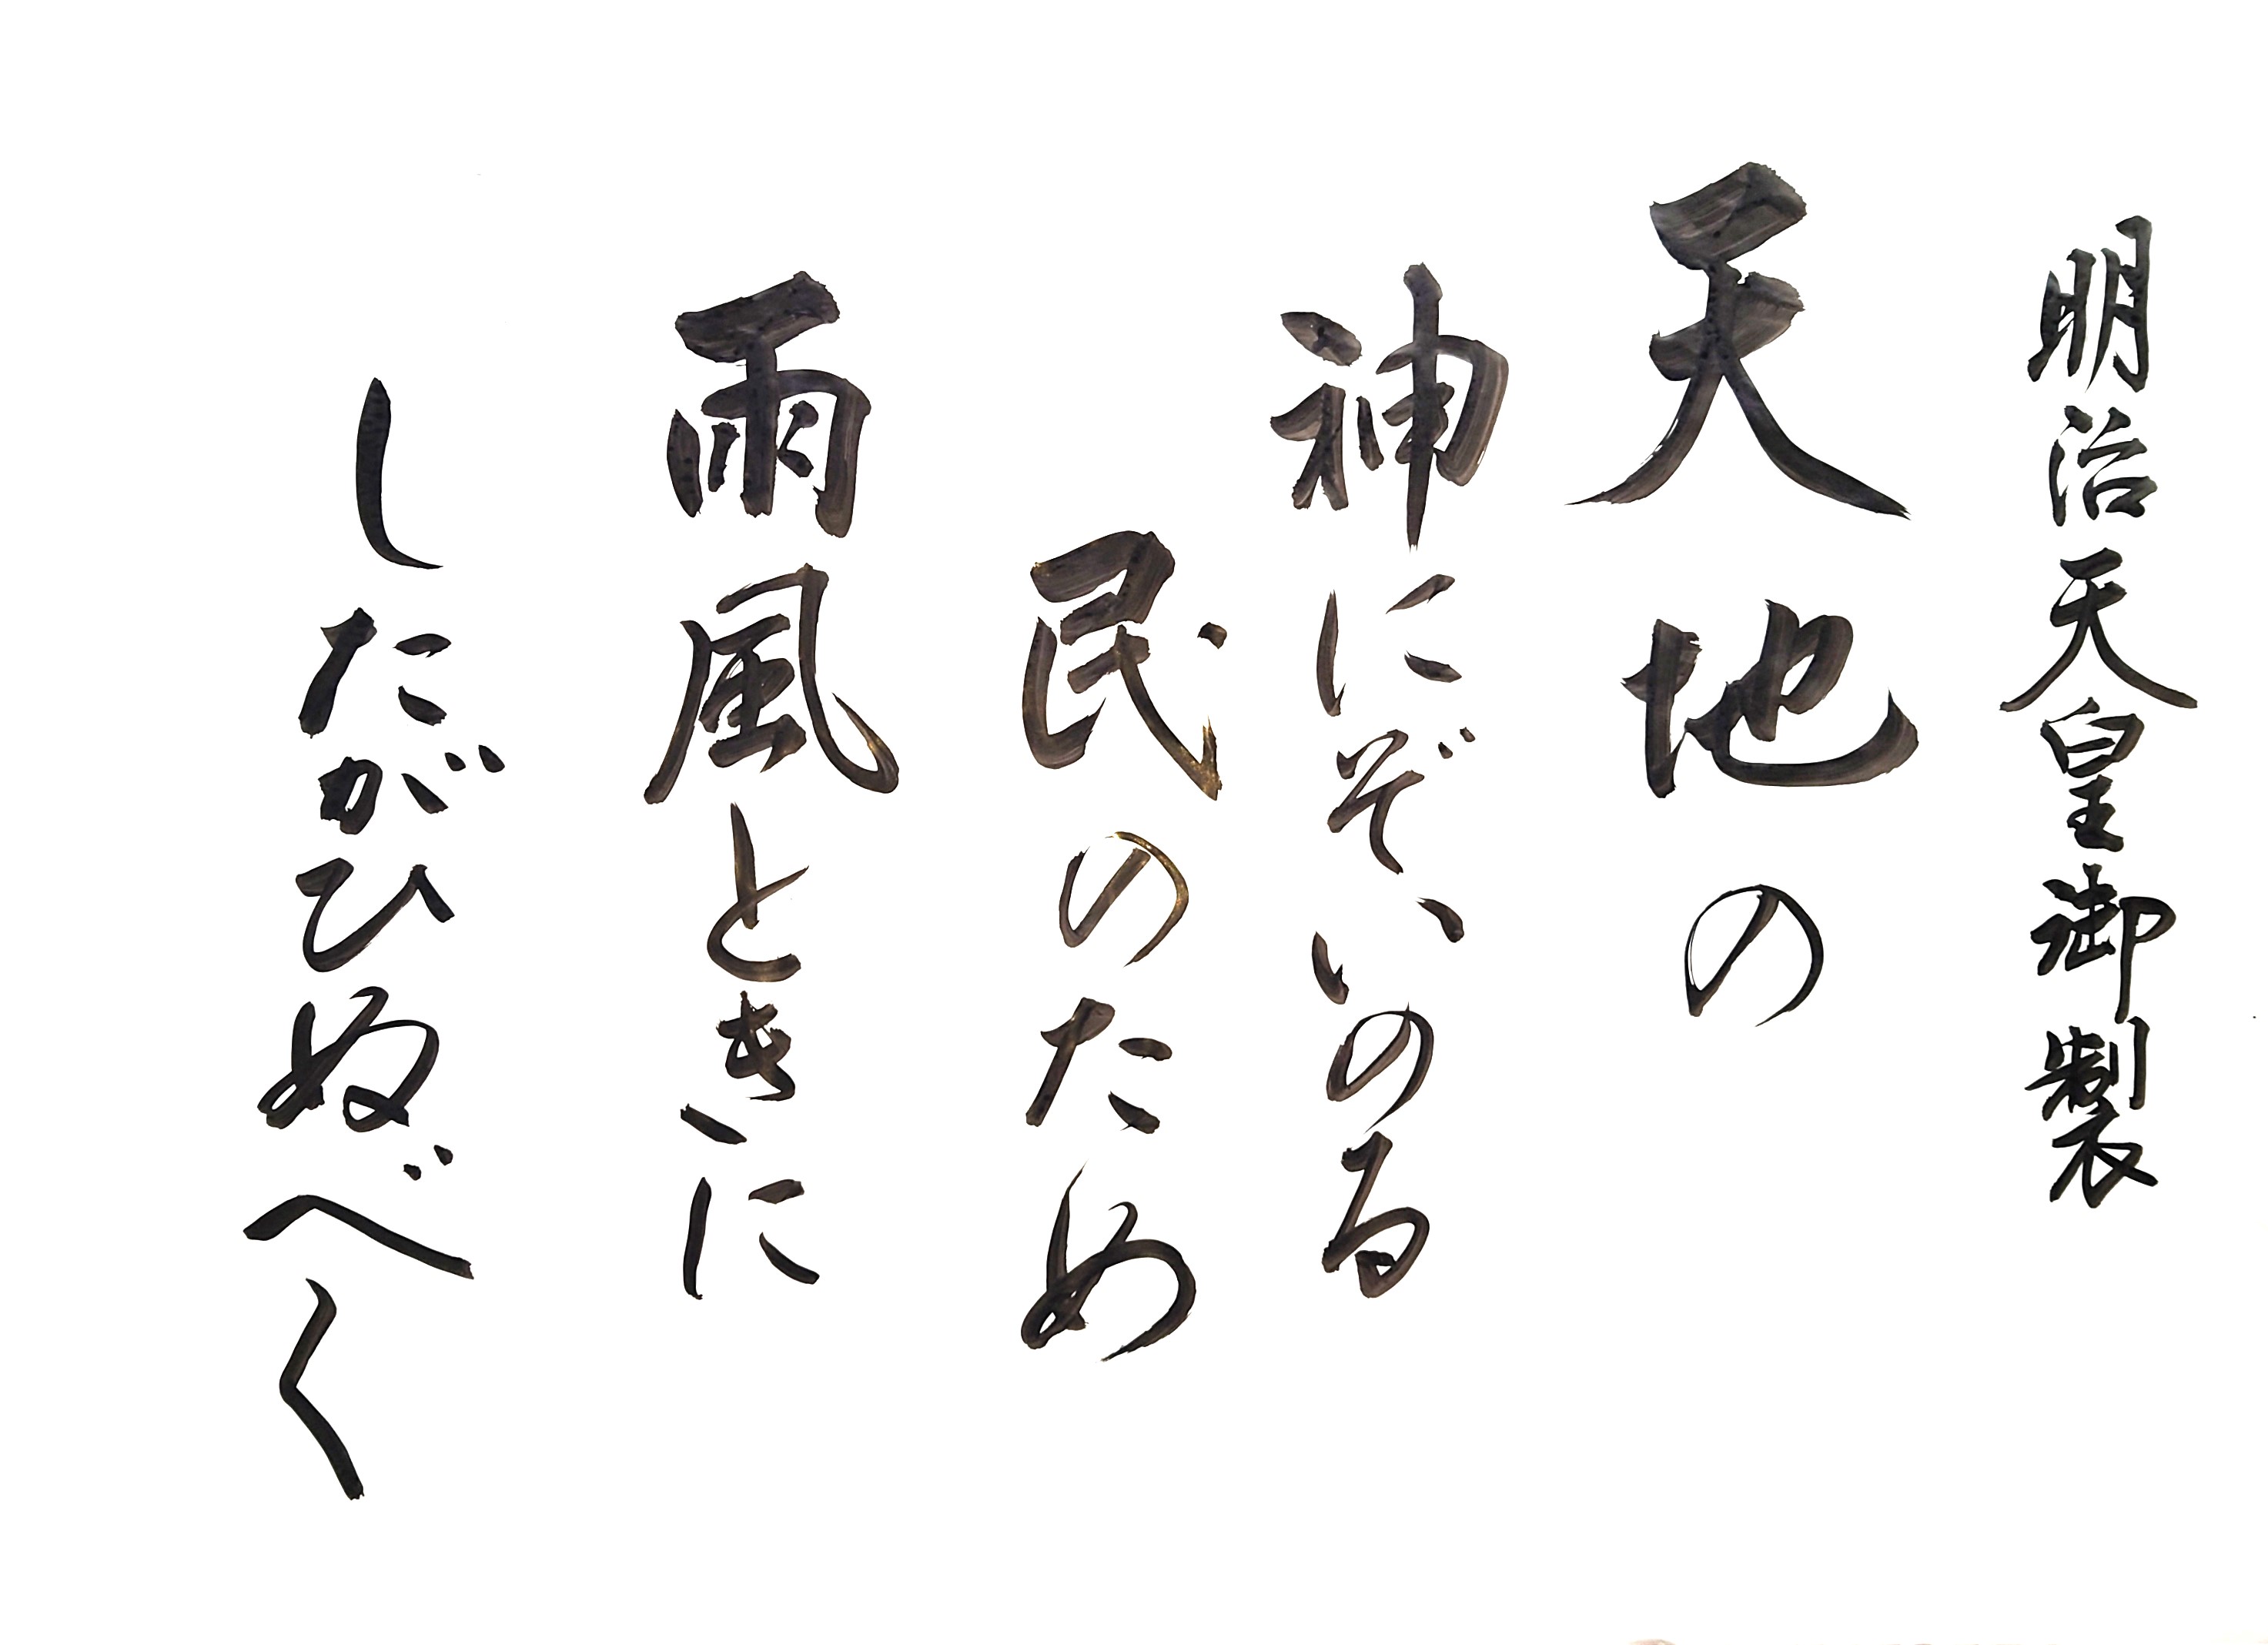 明治天皇御製
天地の
神にぞいのる
民のため
雨風ときに
したがひぬべく